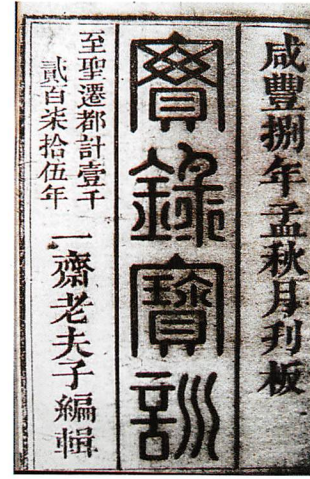 咸豐捌年孟秋月刋板
實錄寶訓
至聖遷都計壹千
貳百柒拾伍年
一齋老夫子編輯